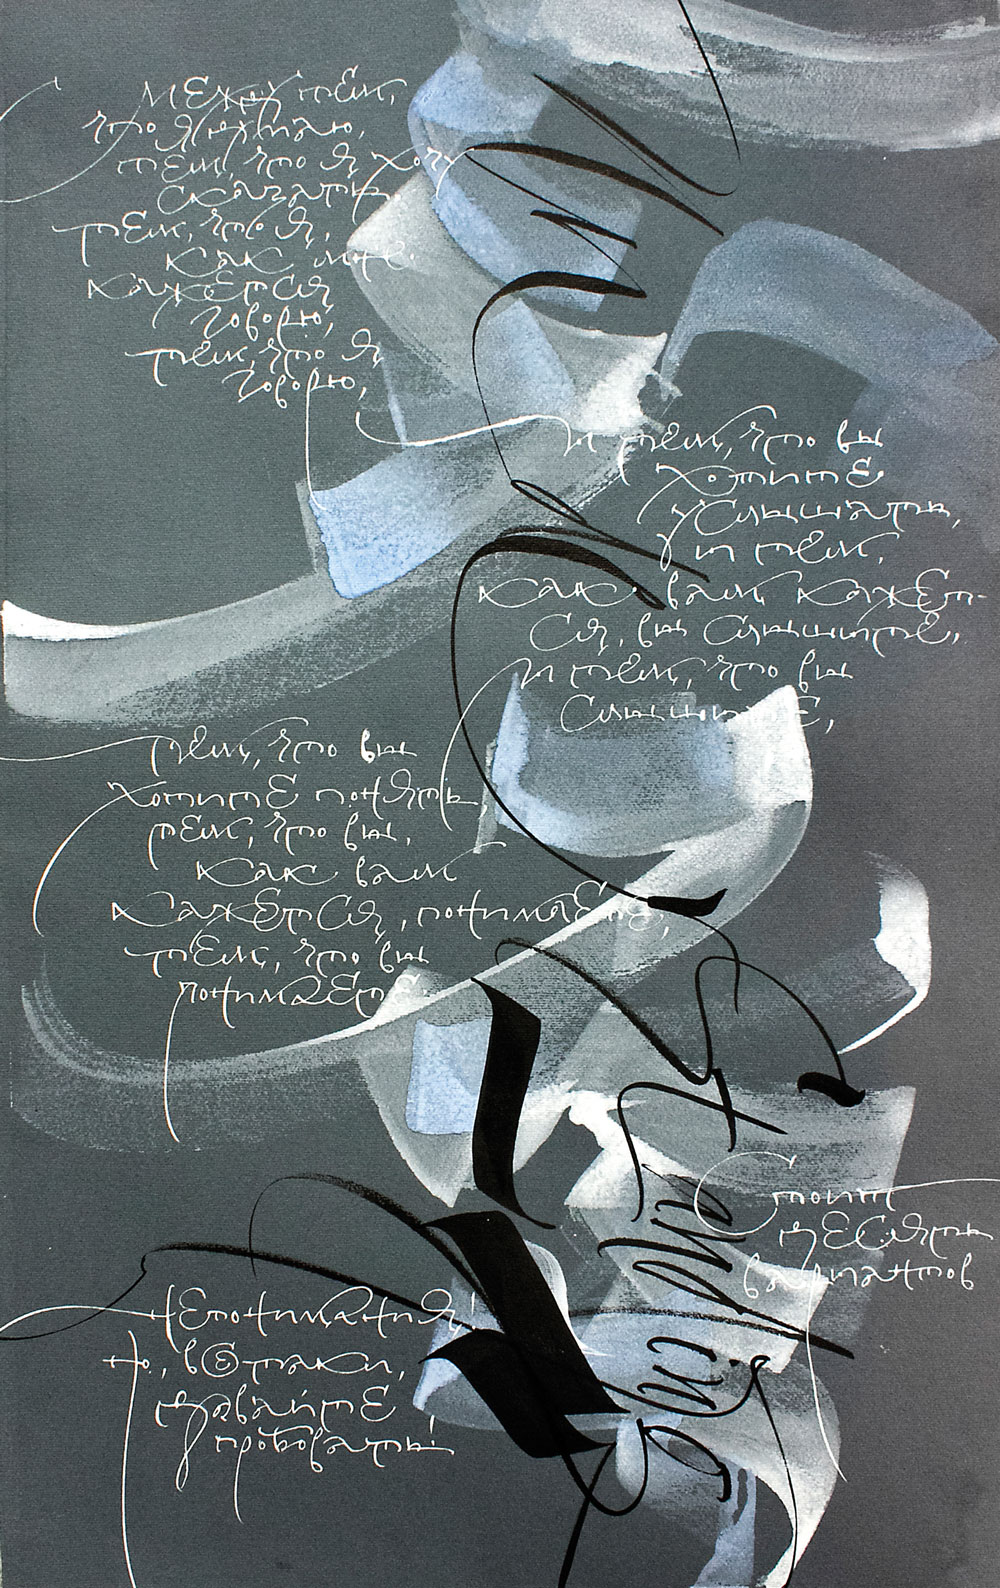 Между тем,
что я думаю,
тем, что я хочу
сказать,
тем, что я,
как мне
кажется
говорю,
тем, что я
говорю,
и тем, что вы
хотите
услышать,
и тем,
как вам кажет-
ся, вы слышите,
и тем, что вы
слышите,
тем, что вы
хотите понять
тем, что вы,
как вам
кажется, понимаете,
тем, что вы
понимаете.
Стоит
десять
вариантов
непонимания!
Но, всётаки,
давайте
пробовать!
Misunderstanding